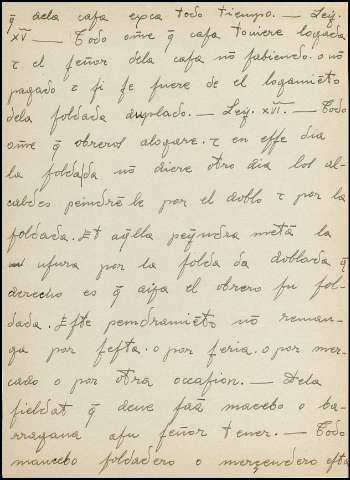 q̃ dela casa exca todo tiempo. — Ley.
XV — Todo om̃e q̃ casa toviere logada
τ el señor dela casa nõ sabiendo. o nõ
pagado τ si se fuere de el logamiẽto
dela soldada duplado. — Ley. XVI. — Todo
om̃e q̃ obreros alogare. τ en esse dia
la soldada nõ diere otro dia los al-
caldes peindrẽ le por el doblo τ por la
soldada. Et aq̃lla peyndra metã la
usura por la soldada doblada q̃
derecho es q̃ aya el obrero su sol-
dada. Este pendramiẽto nõ reman-
ga por fefta. o por feria. o por mer-
cado o por otra occasion. — Dela
fieldat q̃ deue mãcebo o ba-
rragana a su señor tener. — Todo
mancebo soldadero o merçendero esta